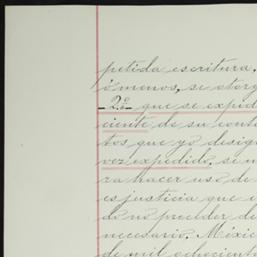 petida escritura,
ó menos, se otorg
-2º- que se expid
ciente de su conte
tos que yo design
vez expedido, si n
ra hacer uso de
es justicia que i
do no proceder de
necesario. Méxic
de mil ochocient